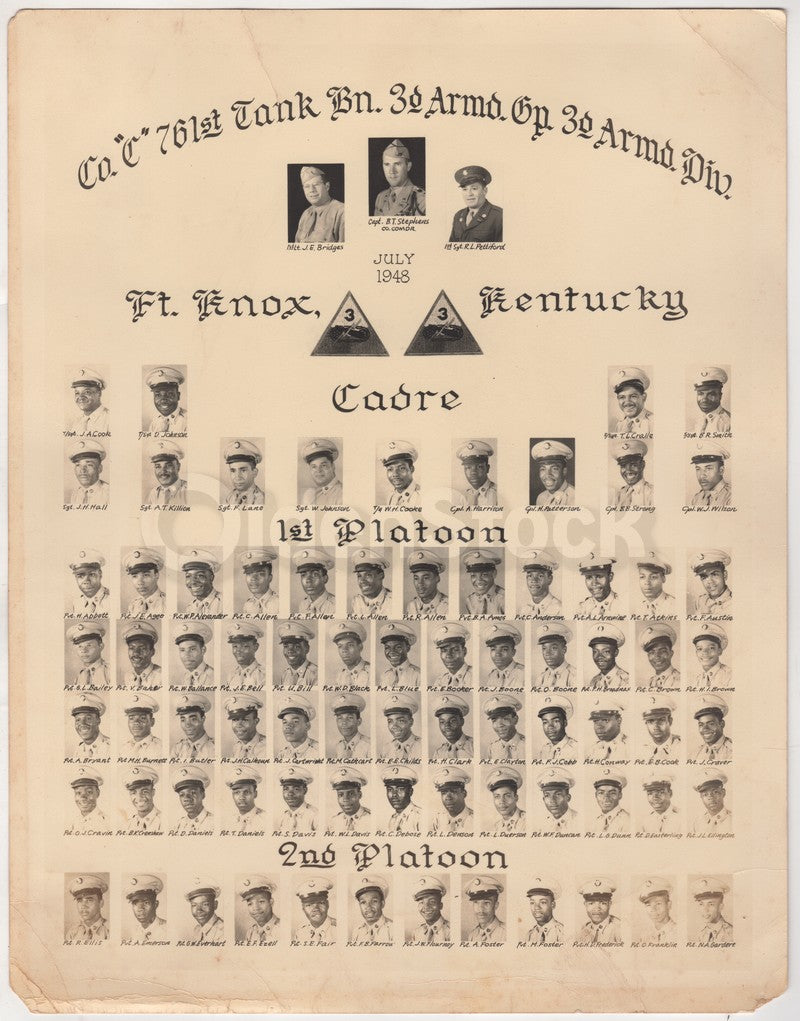 Co. "C" 761st Tank Bn. 3d Armd. Gp. 3d Armd. Div.
Capt. B.T. Stephens
co. comdr.
1st Lt. J.E. Bridges
1st Sgt. R.L. Pettiford
JULY
1948
Ft. Knox, Kentucky
3 3
Cadre
T/Sgt. J.A. Cook T/Sgt. D. Johnson S/Sgt. T.L. Craile S/Sgt. B.R. Smith
Sgt. J.H. Hall Sgt. A.T. Killion Sgt. F. Lane Sgt. W. Johnson T/4 W.H. Cooke Cpl. A. Harrison Cpl. H. Patterson Cpl. B.B. Strong Cpl. W.J. Wilson
1st Platoon
Pvt. H. Abbott Pvt. J.E. Ageo Pvt. W.P. Alexander Pvt. C. Allen Pvt. F. Allen Pvt. L. Allen Pvt. R. Allen Pvt. R.A. Amos Pvt. C. Anderson Pvt. A.L. Pvt. T. Atkins Pvt. F. Austin
Pvt. G.L. Bailey Pvt. V. Baker Pvt. W. Ballance Pvt. J.E. Bell Pvt. U. Bill Pvt. W.D. Black Pvt. L. Blue Pvt. E. Booker Pvt. J. Boone Pvt. O. Boone Pvt. P.H. Pvt. C. Brown Pvt. H.I. Brown
Pvt. A. Bryant Pvt. M.H. Burness Pvt. I. Butler Pvt. J.H. Calhoun Pvt. J. Cartwright Pvt. M. Cathcart Pvt. E.E. Childs Pvt. H. Clark Pvt. E. Clayton Pvt. F.J. Cobb Pvt. H. Conway Pvt. E.B. Cook Pvt. J. Craver
Pvt. O.J. Cravin Pvt. B.K. Crenshaw Pvt. D. Daniels Pvt. T. Daniels Pvt. S. Davis Pvt. W.L. Davis Pvt. C. Debose Pvt. L. Denson Pvt. L. Duerson Pvt. W.F. Duncan Pvt. L.O. Dunn Pvt. D. Easterling Pvt. J.L. Edington
2nd Platoon
Pvt. R. Ellis Pvt. A. Emerson Pvt. G.W. Everhart Pvt. E.F. Ezell Pvt. S.E. Fair Pvt. F.B. Farrow Pvt. J.W. Flournoy Pvt. A. Foster Pvt. M. Foster Pvt. H.D. Frederick Pvt. O. Franklin Pvt. N.A. Gardere